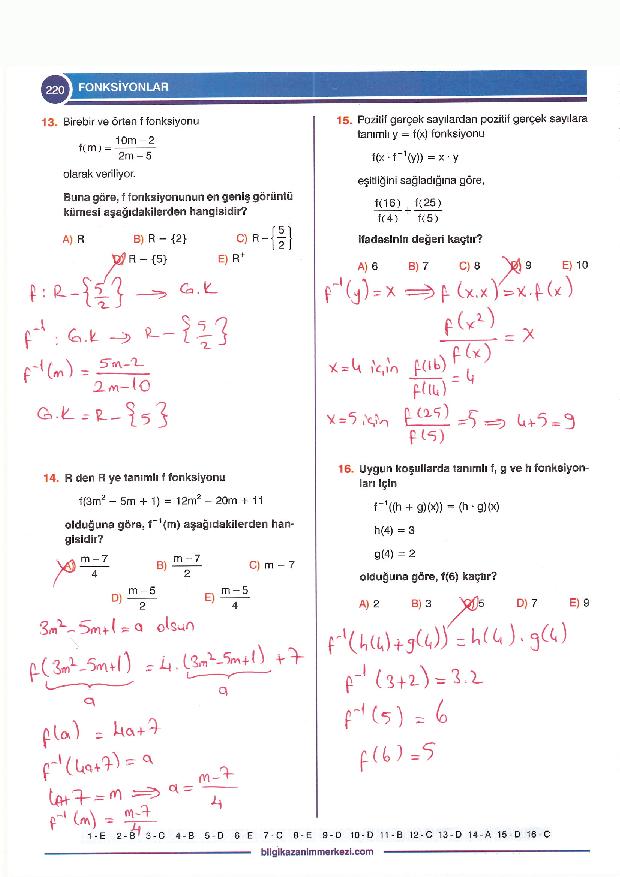 220 FONKSİYONLAR
13. Birebir ve örten f fonksiyonu
f(m) = \frac{10m - 2}{2m - 5}
olarak veriliyor.
Buna göre, f fonksiyonunun en geniş görüntü
kümesi aşağıdakilerden hangisidir?
A) R B) R - {2} C) R - {\frac{5}{2}}
D) R - {5} E) R⁺
f : R - {\frac{5}{2}} → G.K
f⁻¹ : G.K → R - {\frac{5}{2}}
f⁻¹(m) = \frac{5m-2}{2m-10}
G.K = R - {5}
14. R den R ye tanımlı f fonksiyonu
f(3m² - 5m + 1) = 12m² - 20m + 11
olduğuna göre, f⁻¹(m) aşağıdakilerden han-
gisidir?
A) \frac{m-7}{4} B) \frac{m-7}{2} C) m - 7
D) \frac{m-5}{2} E) \frac{m-5}{4}
3m²-5m+1 = a olsun
f(3m²-5m+1) = 4.(3m²-5m+1) + 7
a a
f(a) = 4a+7
f⁻¹(4a+7) = a
4a+7 = m ⟹ a = \frac{m-7}{4}
f⁻¹(m) = \frac{m-7}{4}
15. Pozitif gerçek sayılardan pozitif gerçek sayılara
tanımlı y = f(x) fonksiyonu
f(x · f⁻¹(y)) = x · y
eşitliğini sağladığına göre,
\frac{f(16)}{f(4)} + \frac{f(25)}{f(5)}
ifadesinin değeri kaçtır?
A) 6 B) 7 C) 8 D) 9 E) 10
f⁻¹(y) = x ⟹ f(x.x) = x.f(x)
\frac{f(x²)}{f(x)} = x
x=4 için \frac{f(16)}{f(4)} = 4
x=5 için \frac{f(25)}{f(5)} = 5 ⟹ 4+5=9
16. Uygun koşullarda tanımlı f, g ve h fonksiyon-
ları için
f⁻¹((h + g)(x)) = (h · g)(x)
h(4) = 3
g(4) = 2
olduğuna göre, f(6) kaçtır?
A) 2 B) 3 C) 5 D) 7 E) 9
f⁻¹(h(4)+g(4)) = h(4).g(4)
f⁻¹(3+2) = 3.2
f⁻¹(5) = 6
f(6) = 5
1 - E 2 - B 3 - C 4 - B 5 - D 6 E 7 - C 8 - E 9 - D 10 - D 11 - B 12 - C 13 - D 14 - A 15 - D 16 - C
bilgikazanimmerkezi.com